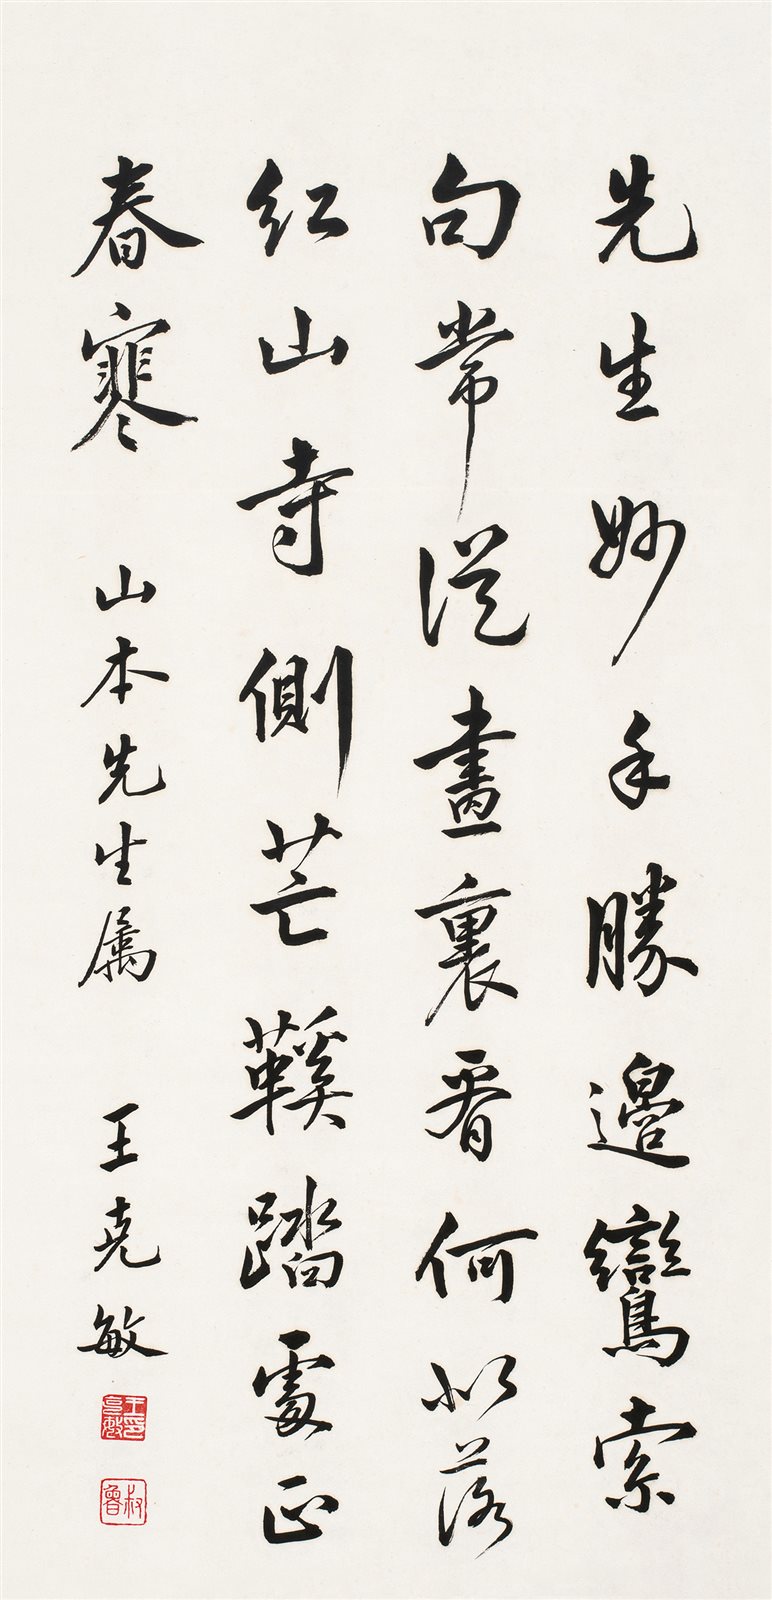 先生妙手勝邉鸞索
句常從畫裏看何似落
紅山寺側芒鞵踏處正
春寒 山本先生属 王克敏
王印克敏
叔魯